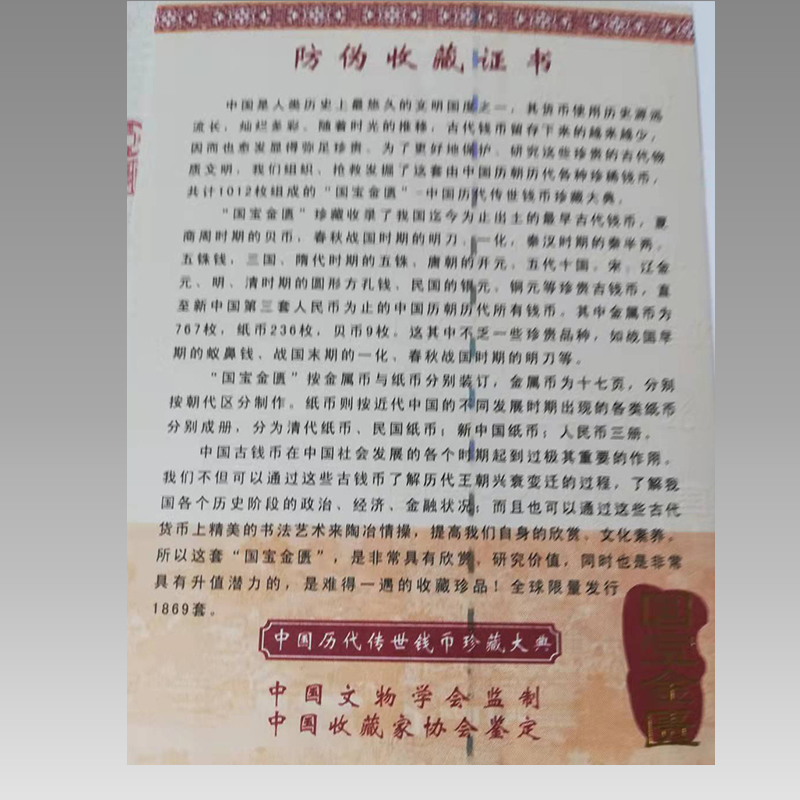 防伪收藏证书
中国是人类历史上最悠久的文明国度之一，其货币使用历史源远
流长，灿烂多彩。随着时光的推移，古代钱币留存下来的越来越少，
因而也愈发显得弥足珍贵。为了更好地保护、研究这些珍贵的古代物
质文明，我们组织、抢救发掘了这套由中国历朝历代各种珍稀钱币，
共计1012枚组成的“国宝金匮”-中国历代传世钱币珍藏大典。
“国宝金匮”珍藏收录了我国迄今为止出土的最早古代钱币，夏
商周时期的贝币，春秋战国时期的明刀、一化，秦汉时期的秦半两、
五铢钱，三国、隋代时期的五铢、唐朝的开元、五代十国、宋、辽金
元、明、清时期的圆形方孔钱、民国的银元、铜元等珍贵古钱币，直
至新中国第三套人民币为止的中国历朝历代所有钱币。其中金属币为
767枚，纸币236枚，贝币9枚。这其中不乏一些珍贵品种，如战国早
期的蚁鼻钱、战国末期的一化、春秋战国时期的明刀等。
“国宝金匮”按金属币与纸币分别装订，金属币为十七页，分别
按朝代区分制作。纸币则按近代中国的不同发展时期出现的各类纸币
分别成册，分为清代纸币、民国纸币；新中国纸币；人民币三册。
中国古钱币在中国社会发展的各个时期起到过极其重要的作用。
我们不但可以通过这些古钱币了解历代王朝兴衰变迁的过程，了解我
国各个历史阶段的政治、经济、金融状况；而且也可以通过这些古代
货币上精美的书法艺术来陶冶情操，提高我们自身的欣赏、文化素养。
所以这套“国宝金匮”，是非常具有欣赏、研究价值，同时也是非常
具有升值潜力的，是难得一遇的收藏珍品！全球限量发行
1869套。
中国历代传世钱币珍藏大典
中国文物学会监制
中国收藏家协会鉴定
国宝金匮